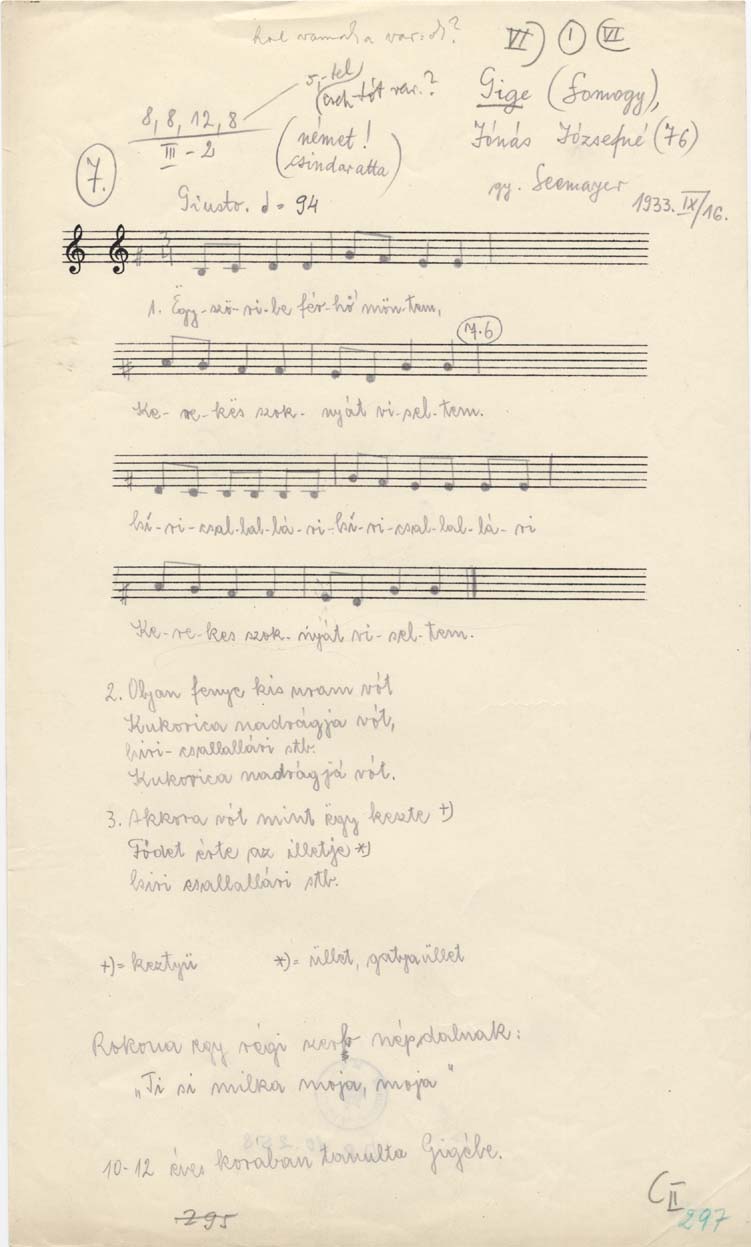 VI) I VII
5, -tel
8, 8, 12, 8
III - 2
(német!
csindaratta)
Gige (Somogy),
Jónás Józsefné (76)
gy. Seemayer
1933. IX/16.
7.
Giusto. = 94
1. Ëgy-szö-ri-be fér-hő mön-tem,
7.6
Ke-re-kës szok-nyát vi-sel-tem.
hi-ri-csal-lal-lá-ri-hi-ri-csal-lal-lá-ri
Ke-re-kes szok-nyát vi-sel-tem.
2. Oljan fenye kis uram vót
Kukorica nadrágja vót,
hiri-csallallári stb.
Kukorica nadrágjá vót.
3. Akkora vót mint ëgy kezte +)
Fődet érte az illetje *)
hiri csallallári stb.
+)= keztyü *)= üllet, gatyaüllet
Rokona egy régi szerb népdalnak:
„Ti si milka moja, moja"
10-12 éves korában tanulta Gigébe.
295
C II
297